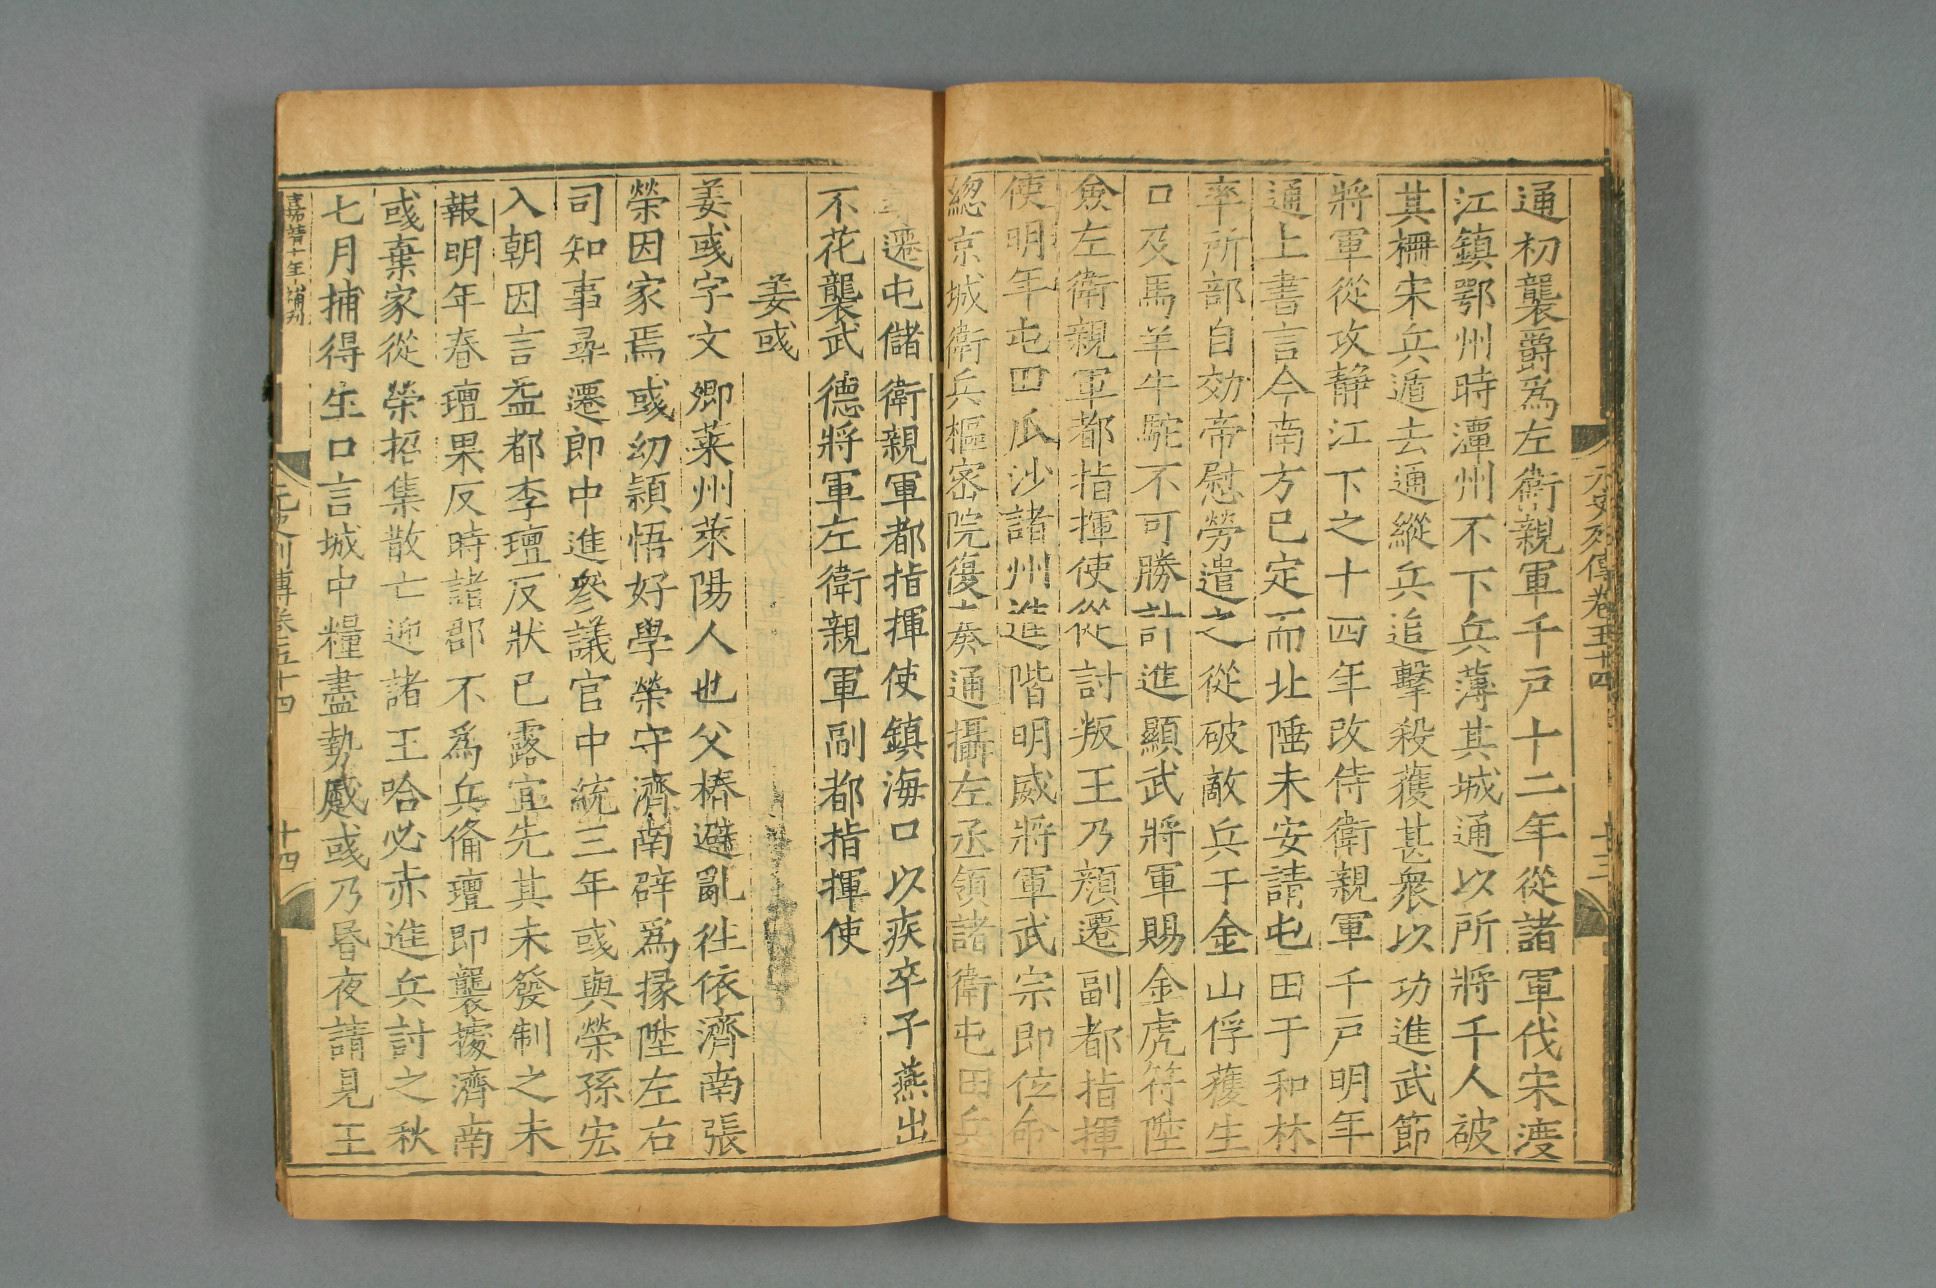 元史列傳卷五十四
十三
通初襲爵爲左衛親軍千戸十二年從諸軍伐宋渡
江鎮鄂州時潭州不下兵薄其城通以所將千人被
其柵宋兵遁去通縱兵追擊殺獲甚衆以功進武節
將軍從攻静江下之十四年改侍衛親軍千戸明年
通上書言今南方已定而北陲未安請屯田于和林
率所部自効帝慰勞遣之從破敵兵于金山俘獲生
口及馬羊牛駝不可勝計進顯武將軍賜金虎符陞
僉左衛親軍都指揮使從討叛王乃顔遷副都指揮
使明年屯田瓜沙諸州進階明威將軍武宗即位命
總京城衛兵樞密院復奏通攝左丞領諸衛屯田兵
遷屯儲衛親軍都指揮使鎮海口以疾卒子燕出
不花襲武德將軍左衛親軍副都指揮使
姜彧
姜彧字文卿萊州萊陽人也父椿避亂往依濟南張
榮因家焉彧幼頴悟好學榮守濟南辟爲掾陞左右
司知事尋遷郎中進參議官中統三年彧與榮孫宏
入朝因言益都李璮反狀已露宜先其未發制之未
報明年春璮果反時諸郡不爲兵俻璮即襲據濟南
彧棄家從榮招集散亡迎諸王哈必赤進兵討之秋
七月捕得生口言城中糧盡勢蹙彧乃昏夜請見王
嘉靖十年補刋
元史列傳卷五十四
十四